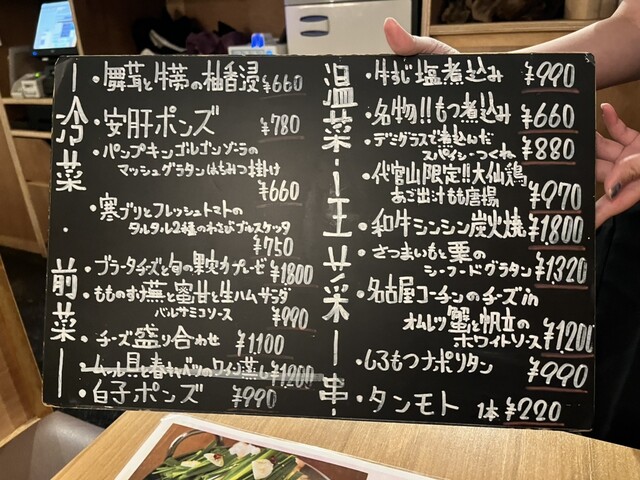 冷菜・前菜
・舞茸と牛蒡の柚香浸 ¥660
・安肝ポンズ ¥780
・パンプキンゴルゴンゾーラの
マッシュグラタンはちみつ掛け
¥660
・寒ブリとフレッシュトマトの
タルタル2種のわさびブルスケッタ
¥750
・ブラータチーズと旬の果実カプレーゼ ¥1800
・もものすけ蕪と蜜甘と生ハムサラダ
バルサミコソース ¥990
・チーズ盛り合わせ ¥1,100
・ムール貝と春キャベツのワイン蒸し ¥1,200
・白子ポンズ ¥990
温菜
・牛すじ塩煮込み ¥990
・名物!!もつ煮込み ¥660
・デミグラスで煮込んだ
スパイシーつくね ¥880
・代官山限定!!大仙鶏
あご出汁もも唐揚 ¥970
・和牛シンシン炭火焼 ¥1,800
・さつまいもと栗の
シーフードグラタン ¥1,320
・名古屋コーチンのチーズin
オムレツ蟹と帆立の
ホワイトソース ¥1,200
・しろもつナポリタン ¥990
串
・タンモト 1本 ¥220